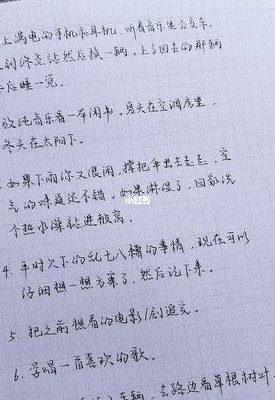 上满电的手机和耳机，听着音乐坐公交车，
到终点站然后换一辆，上了回去的那辆
后睡一觉。
放纯音乐看一本闲书，夏天在空调房里，
冬天在太阳下。
如果下雨你又很闲，撑把伞出去走走，空
气的味道还不错，如果淋湿了，回家洗
个热水澡钻进被窝。
小红书
4. 平时欠下的乱七八糟的事情，现在可以
仔细想一想方案了，然后记下来。
5. 把之前想看的电影/剧追完。
6. 学唱一首喜欢的歌。
车辆，去路边看草根树叶